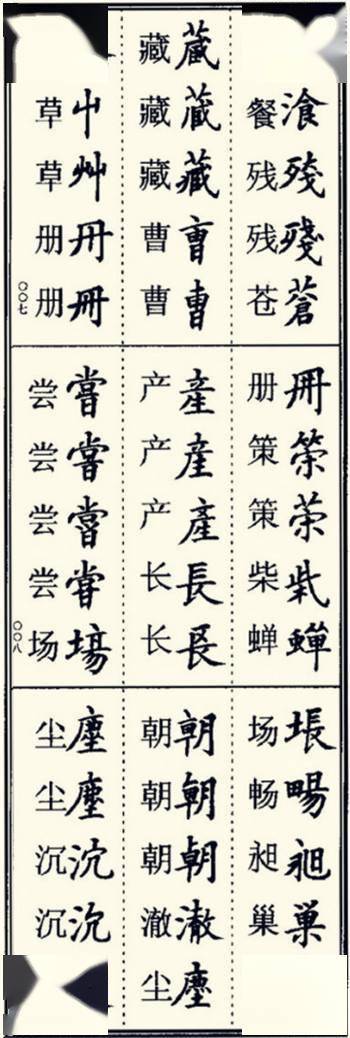 湌残殘蒼
餐残残苍
蔵蔵藏曺曹
藏藏藏曹曹
屮艸冊冊
草草册册
〇〇七
冊筞茦柴蟬
册策策柴蝉
産産產長長
产产产长长
嘗嘗嘗甞塲
尝尝尝尝场
〇〇八
場暢昶巣
场畅昶巢
朝朝朝澈塵
朝朝朝澈尘
塵塵沉沉
尘尘沉沉